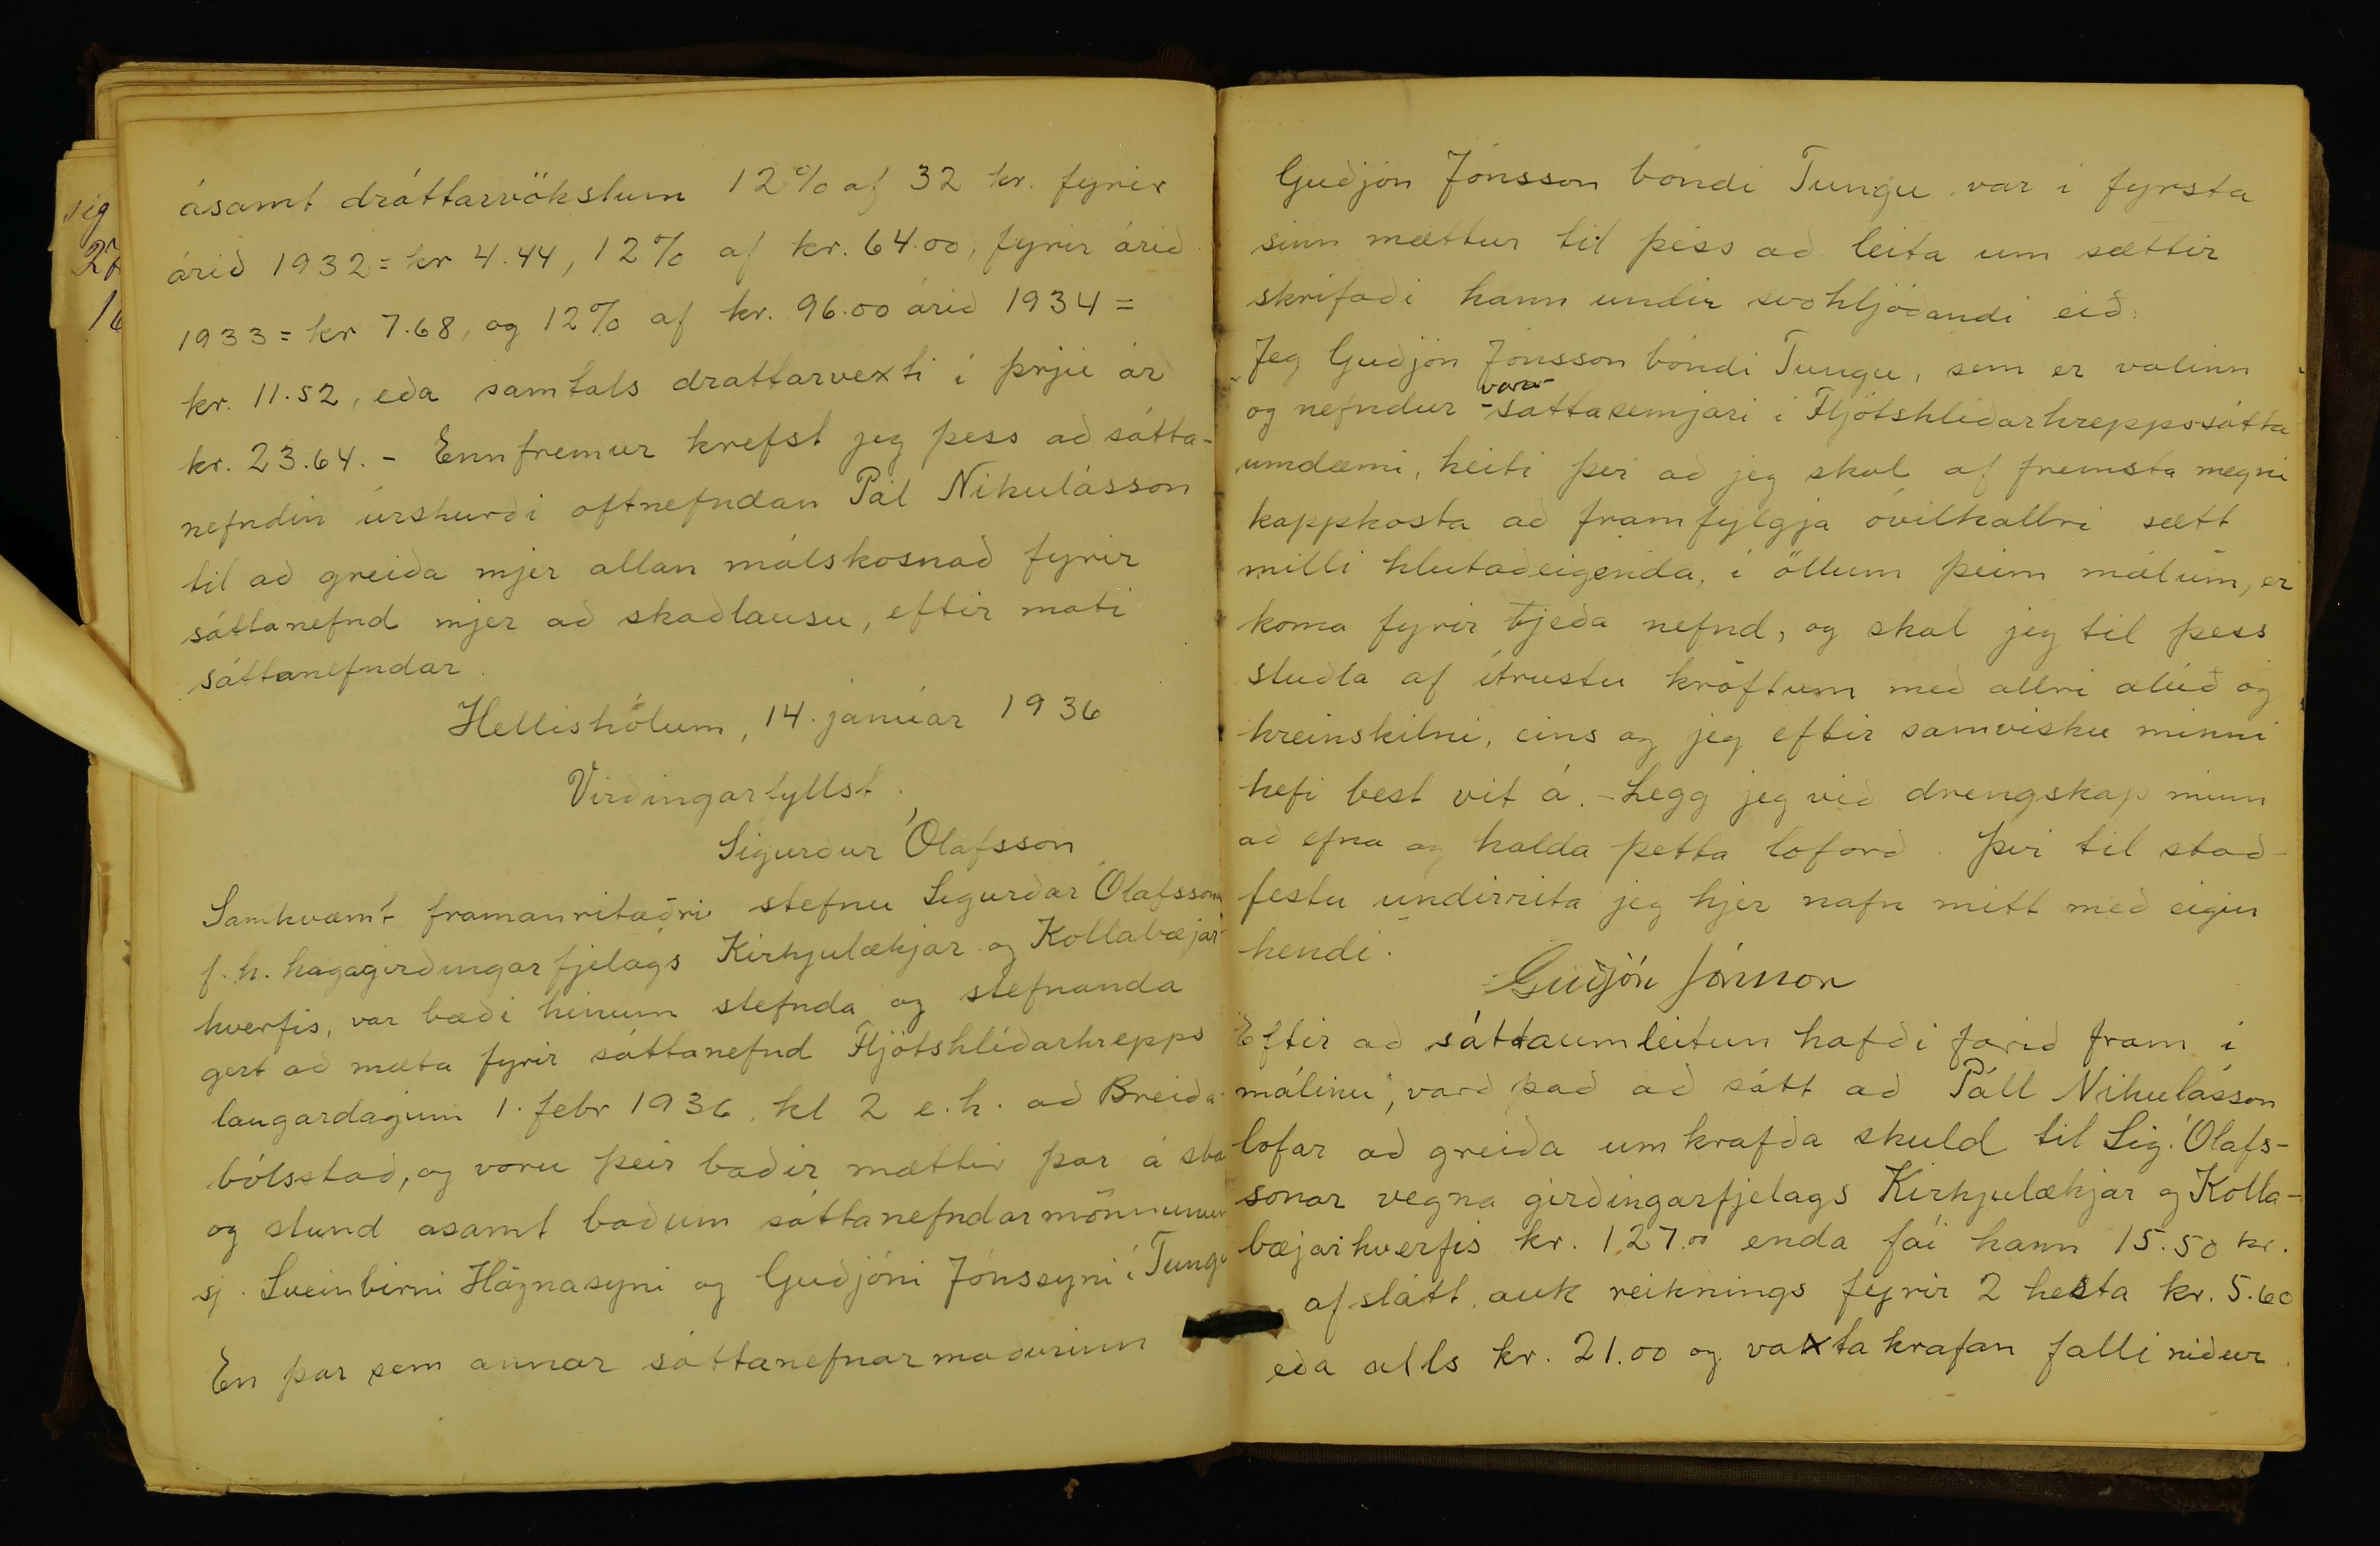 ásamt dráttarvökstum 12% af 32 kr. fyrir
árið 1932 = kr 4.44, 12% af kr. 64.00, fyrir árið
1933 = kr 7.68, og 12% af kr. 96.00 árið 1934 =
kr. 11.52, eða samtals drattarvexti í þrjú ár
kr. 23.64. - Ennfremur krefst jeg þess að sátta-
nefndin úrskurði oftnefndan Pál Nikulásson
til að greiða mjer allan málskosnað fyrir
sáttanefnd mjer að skaðlausu, eftir mati
sáttanefndar.
Hellishólum, 14. janúar 1936
Virðingarfyllst.
Sigurður Ólafsson
Samkvæmt framanritaðri stefnu Sigurðar Ólafssonar
f.h. hagagirðingarfjelags Kirkjulækjar og Kollabæjar
hverfis, var bæði hinum stefnda og stefnanda
gert að mæta fyrir sáttanefnd Fljótshlíðarhrepps
laugardaginn 1. febr 1936. kl 2 e.h. að Breiða-
bólsstað, og voru þeir baðir mættir þar á sta
og stund asamt baðum sáttanefndarmönnunum
sj. Sveinbirni Högnasyni og Guðjóni Jónssyni í Tungu
En þar sem annar sáttanefnarmaðurinn
sig
27
16
Guðjón Jónsson bóndi Tungu, var í fyrsta
sinn mættur til þess að leita um sættir
skrifaði hann undir svohljóðandi eið:
„Jeg Guðjón Jónsson bóndi Tungu, sem er valinn
vara-
og nefndur - sáttasemjari í Fljótshlíðarhreppssátta
umdæmi, heiti því að jeg skal af fremsta megni
kappkosta að framfylgja óvilhallri sætt
milli hlutaðeigenda, í öllum þeim málum, er
koma fyrir tjeða nefnd, og skal jeg til þess
stuðla af ítrustu kröftum með allri alúð og
hreinskilni, eins og jeg eftir samvisku minni
hefi best vit á. - Legg jeg við drengskap minn
að efna og halda þetta loforð. Því til stað-
festu undirrita jeg hjer nafn mitt með eigin
hendi."
Guðjón Jónsson
Eftir að sáttaumleitun hafði farið fram í
málinu, varð það að sátt að Páll Nikulásson
lofar að greiða umkrafða skuld til Sig. Ólafs-
sonar vegna girðingarfjelags Kirkjulækjar og Kolla-
bæjarhverfis kr. 127.00 enda fái hann 15.50 kr.
afslátt, auk reiknings fyrir 2 hesta kr. 5.60
eða alls kr. 21.00 og vaxtakrafan falli niður.